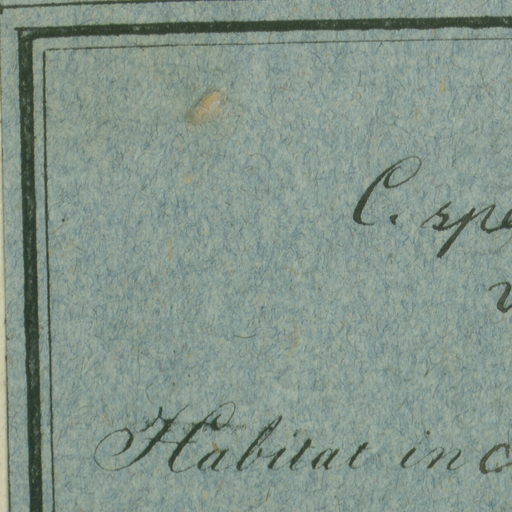 C. spe
Habitat in